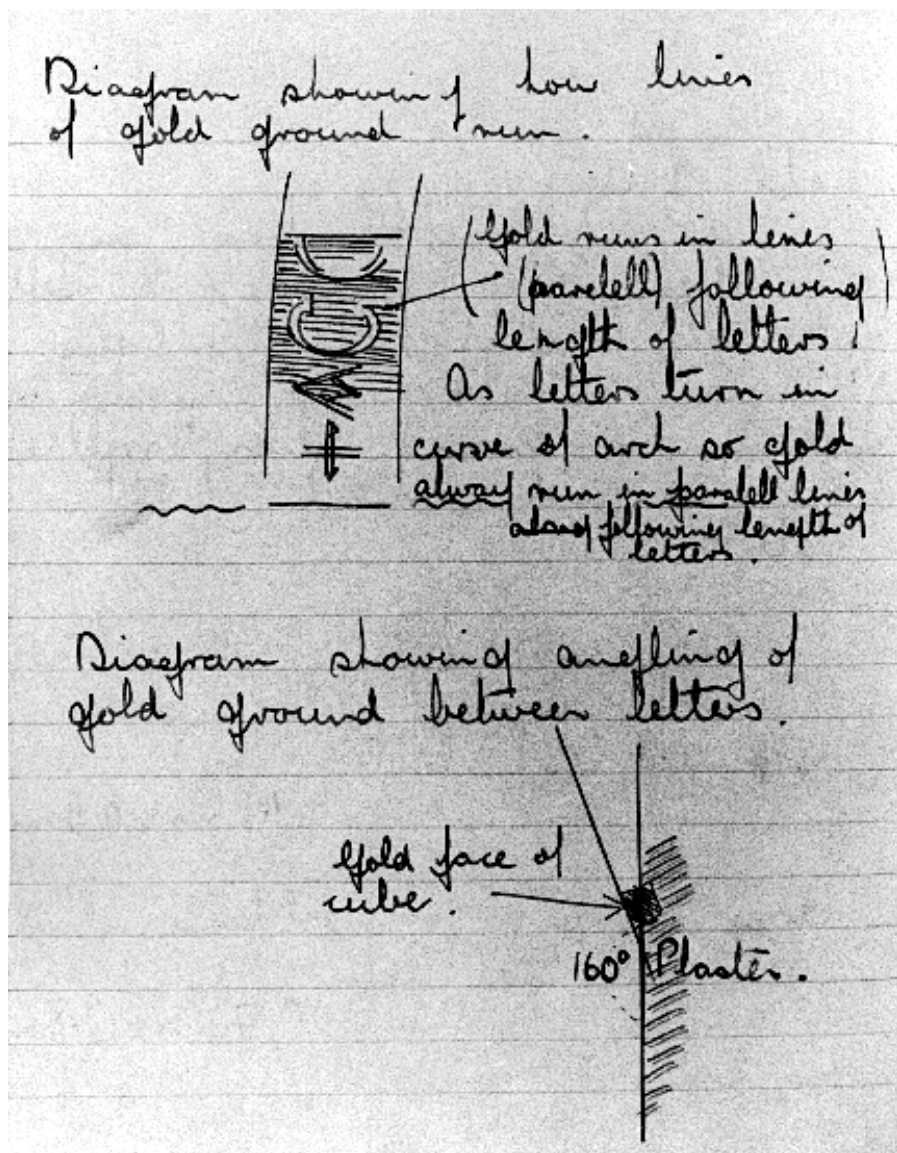 Diagram showing how lines
of gold ground run.
(Gold runs in lines
(paralell) following)
length of letters.
As letters turn in
curve of arch so gold
alway run in paralell lines
following length of
letters.
Diagram showing angling of
gold ground between letters.
Gold face of
cube.
160° Plaster.